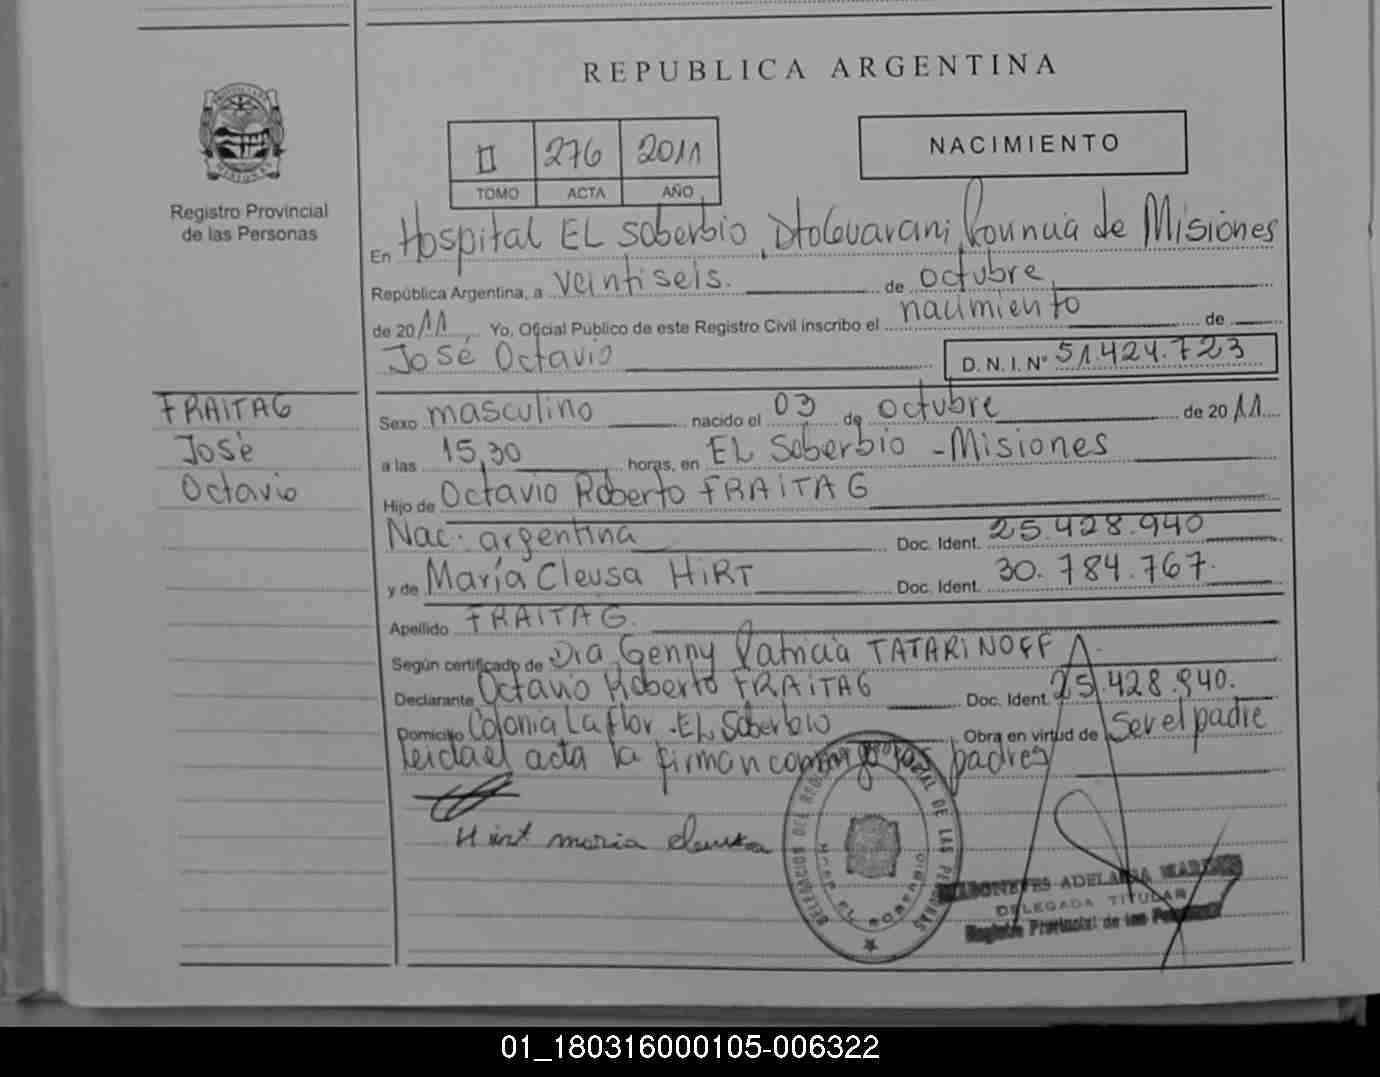 REPUBLICA ARGENTINA
II 276 2011
TOMO ACTA AÑO
NACIMIENTO
Registro Provincial
de las Personas
En Hospital EL Soberbio, Dto Guarani, Provincia de Misiones
República Argentina, a veintiseis. de octubre
de 2011 Yo, Oficial Público de este Registro Civil inscribo el nacimiento de
José Octavio D. N. I. Nº 51.424.723
FRAITAG
José
Octavio
Sexo masculino nacido el 03 de octubre de 2011
a las 15,30 horas, en EL Soberbio - Misiones
Hijo de Octavio Roberto FRAITAG
Nac. argentina Doc. Ident. 25.428.940
y de María Cleusa HIRT Doc. Ident. 30.784.767.
Apellido FRAITAG.
Según certificado de Dra Genny Patricia TATARINOFF
Declarante Octavio Roberto FRAITAG Doc. Ident. 25.428.940.
Domicilio Colonia La flor - EL Soberbio Obra en virtud de ser el padre
leida el acta la firman conmigo los padres
Hirt maria
DELEGACION DEL REG. PROVINCIAL DE LAS PERSONAS
HOSP. EL SOBERBIO
ADELAIDA
DELEGADA TITULAR
Registro Provincial de las Personas
01_180316000105-006322